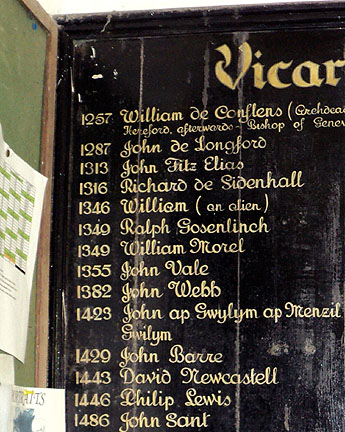 Vicar
1257 William de Conflens (Archdea
Hereford, afterwards - Bishop of Genev
1287 John de Longford
1313 John Fitz Elias
1316 Richard de Sidenhall
1346 William (an alien)
1349 Ralph Gosenlinch
1349 William Morel
1355 John Vale
1382 John Webb
1423 John ap Gwylym ap Menzil
Gwilym
1429 John Barre
1443 David Newcastell
1446 Philip Lewis
1486 John Sant